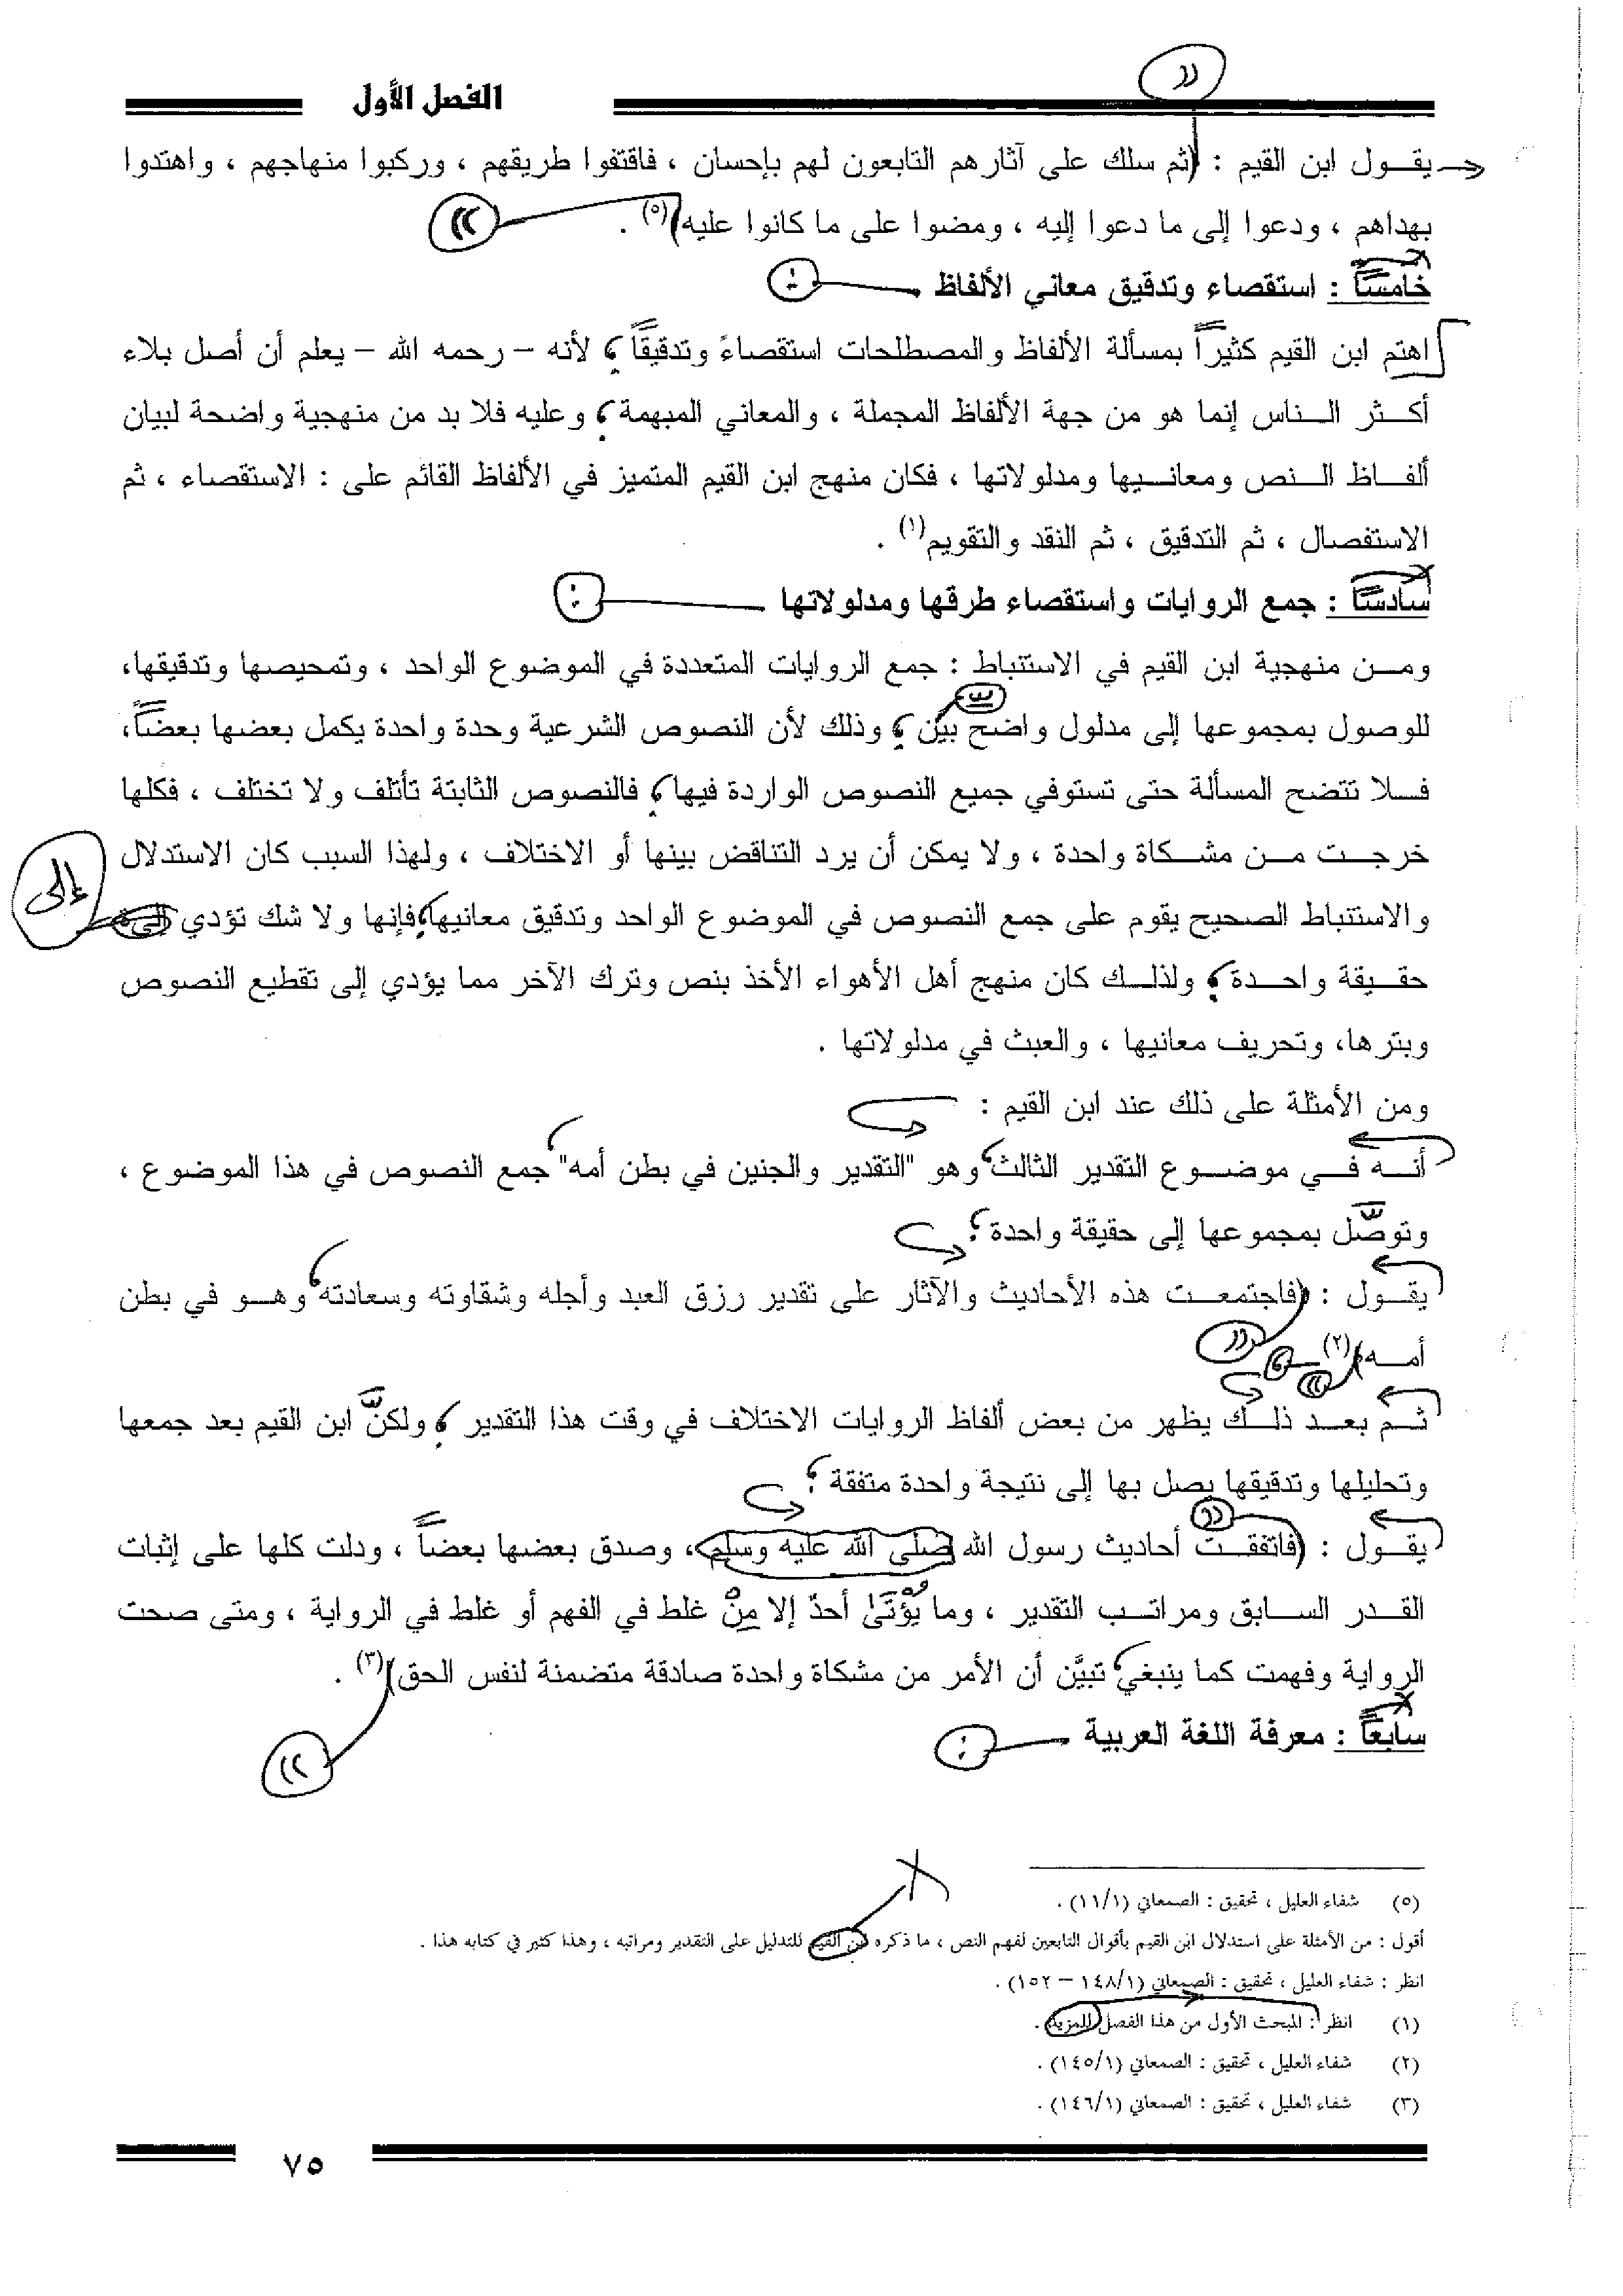 الفصل الأول
يقول ابن القيم : (ثم سلك على آثارهم التابعون لهم بإحسان ، فاقتفوا طريقهم ، وركبوا منهاجهم ، واهتدوا
بهداهم ، ودعوا إلى ما دعوا إليه ، ومضوا على ما كانوا عليه)(٥) .
خامساً : استقصاء وتدقيق معاني الألفاظ
اهتم ابن القيم كثيراً بمسألة الألفاظ والمصطلحات استقصاءً وتدقيقاً؛ لأنه – رحمه الله – يعلم أن أصل بلاء
أكثر الناس إنما هو من جهة الألفاظ المجملة ، والمعاني المبهمة؛ وعليه فلا بد من منهجية واضحة لبيان
ألفاظ النص ومعانيها ومدلولاتها ، فكان منهج ابن القيم المتميز في الألفاظ القائم على : الاستقصاء ، ثم
الاستفصال ، ثم التدقيق ، ثم النقد والتقويم(١) .
سادساً : جمع الروايات واستقصاء طرقها ومدلولاتها
ومن منهجية ابن القيم في الاستنباط : جمع الروايات المتعددة في الموضوع الواحد ، وتمحيصها وتدقيقها،
للوصول بمجموعها إلى مدلول واضح بين ؛ وذلك لأن النصوص الشرعية وحدة واحدة يكمل بعضها بعضاً،
فلا تتضح المسألة حتى تستوفي جميع النصوص الواردة فيها؛ فالنصوص الثابتة تأتلف ولا تختلف ، فكلها
خرجت من مشكاة واحدة ، ولا يمكن أن يرد التناقض بينها أو الاختلاف ، ولهذا السبب كان الاستدلال
والاستنباط الصحيح يقوم على جمع النصوص في الموضوع الواحد وتدقيق معانيها؛ فإنها ولا شك تؤدي إلى
إلى
حقيقة واحدة؛ ولذلك كان منهج أهل الأهواء الأخذ بنص وترك الآخر مما يؤدي إلى تقطيع النصوص
وبترها، وتحريف معانيها ، والعبث في مدلولاتها .
ومن الأمثلة على ذلك عند ابن القيم :
أنه في موضوع التقدير الثالث، وهو "التقدير والجنين في بطن أمه" جمع النصوص في هذا الموضوع ،
وتوصّل بمجموعها إلى حقيقة واحدة؛
يقول : (فاجتمعت هذه الأحاديث والآثار على تقدير رزق العبد وأجله وشقاوته وسعادته، وهو في بطن
أمه)(٢)
ثم بعد ذلك يظهر من بعض ألفاظ الروايات الاختلاف في وقت هذا التقدير ؛ ولكنّ ابن القيم بعد جمعها
وتحليلها وتدقيقها يصل بها إلى نتيجة واحدة متفقة؛
يقول : (فاتفقت أحاديث رسول الله صلى الله عليه وسلم، وصدق بعضها بعضاً ، ودلت كلها على إثبات
القدر السابق ومراتب التقدير ، وما يُؤْتَىٰ أحدٌ إلا مِنْ غلط في الفهم أو غلط في الرواية ، ومتى صحت
الرواية وفهمت كما ينبغي، تبيَّن أن الأمر من مشكاة واحدة صادقة متضمنة لنفس الحق)(٣) .
سابعاً : معرفة اللغة العربية
(٥) شفاء العليل ، تحقيق : الصمعاني (١١/١) .
أقول : من الأمثلة على استدلال ابن القيم بأقوال التابعين لفهم النص ، ما ذكره ابن القيم للتدليل على التقدير ومراتبه ، وهذا كثير في كتابه هذا .
انظر : شفاء العليل ، تحقيق : الصمعاني (١٤٨/١ – ١٥٢) .
(١) انظر : المبحث الأول من هذا الفصل للمزيد .
(٢) شفاء العليل ، تحقيق : الصمعاني (١٤٥/١) .
(٣) شفاء العليل ، تحقيق : الصمعاني (١٤٦/١) .
٧٥